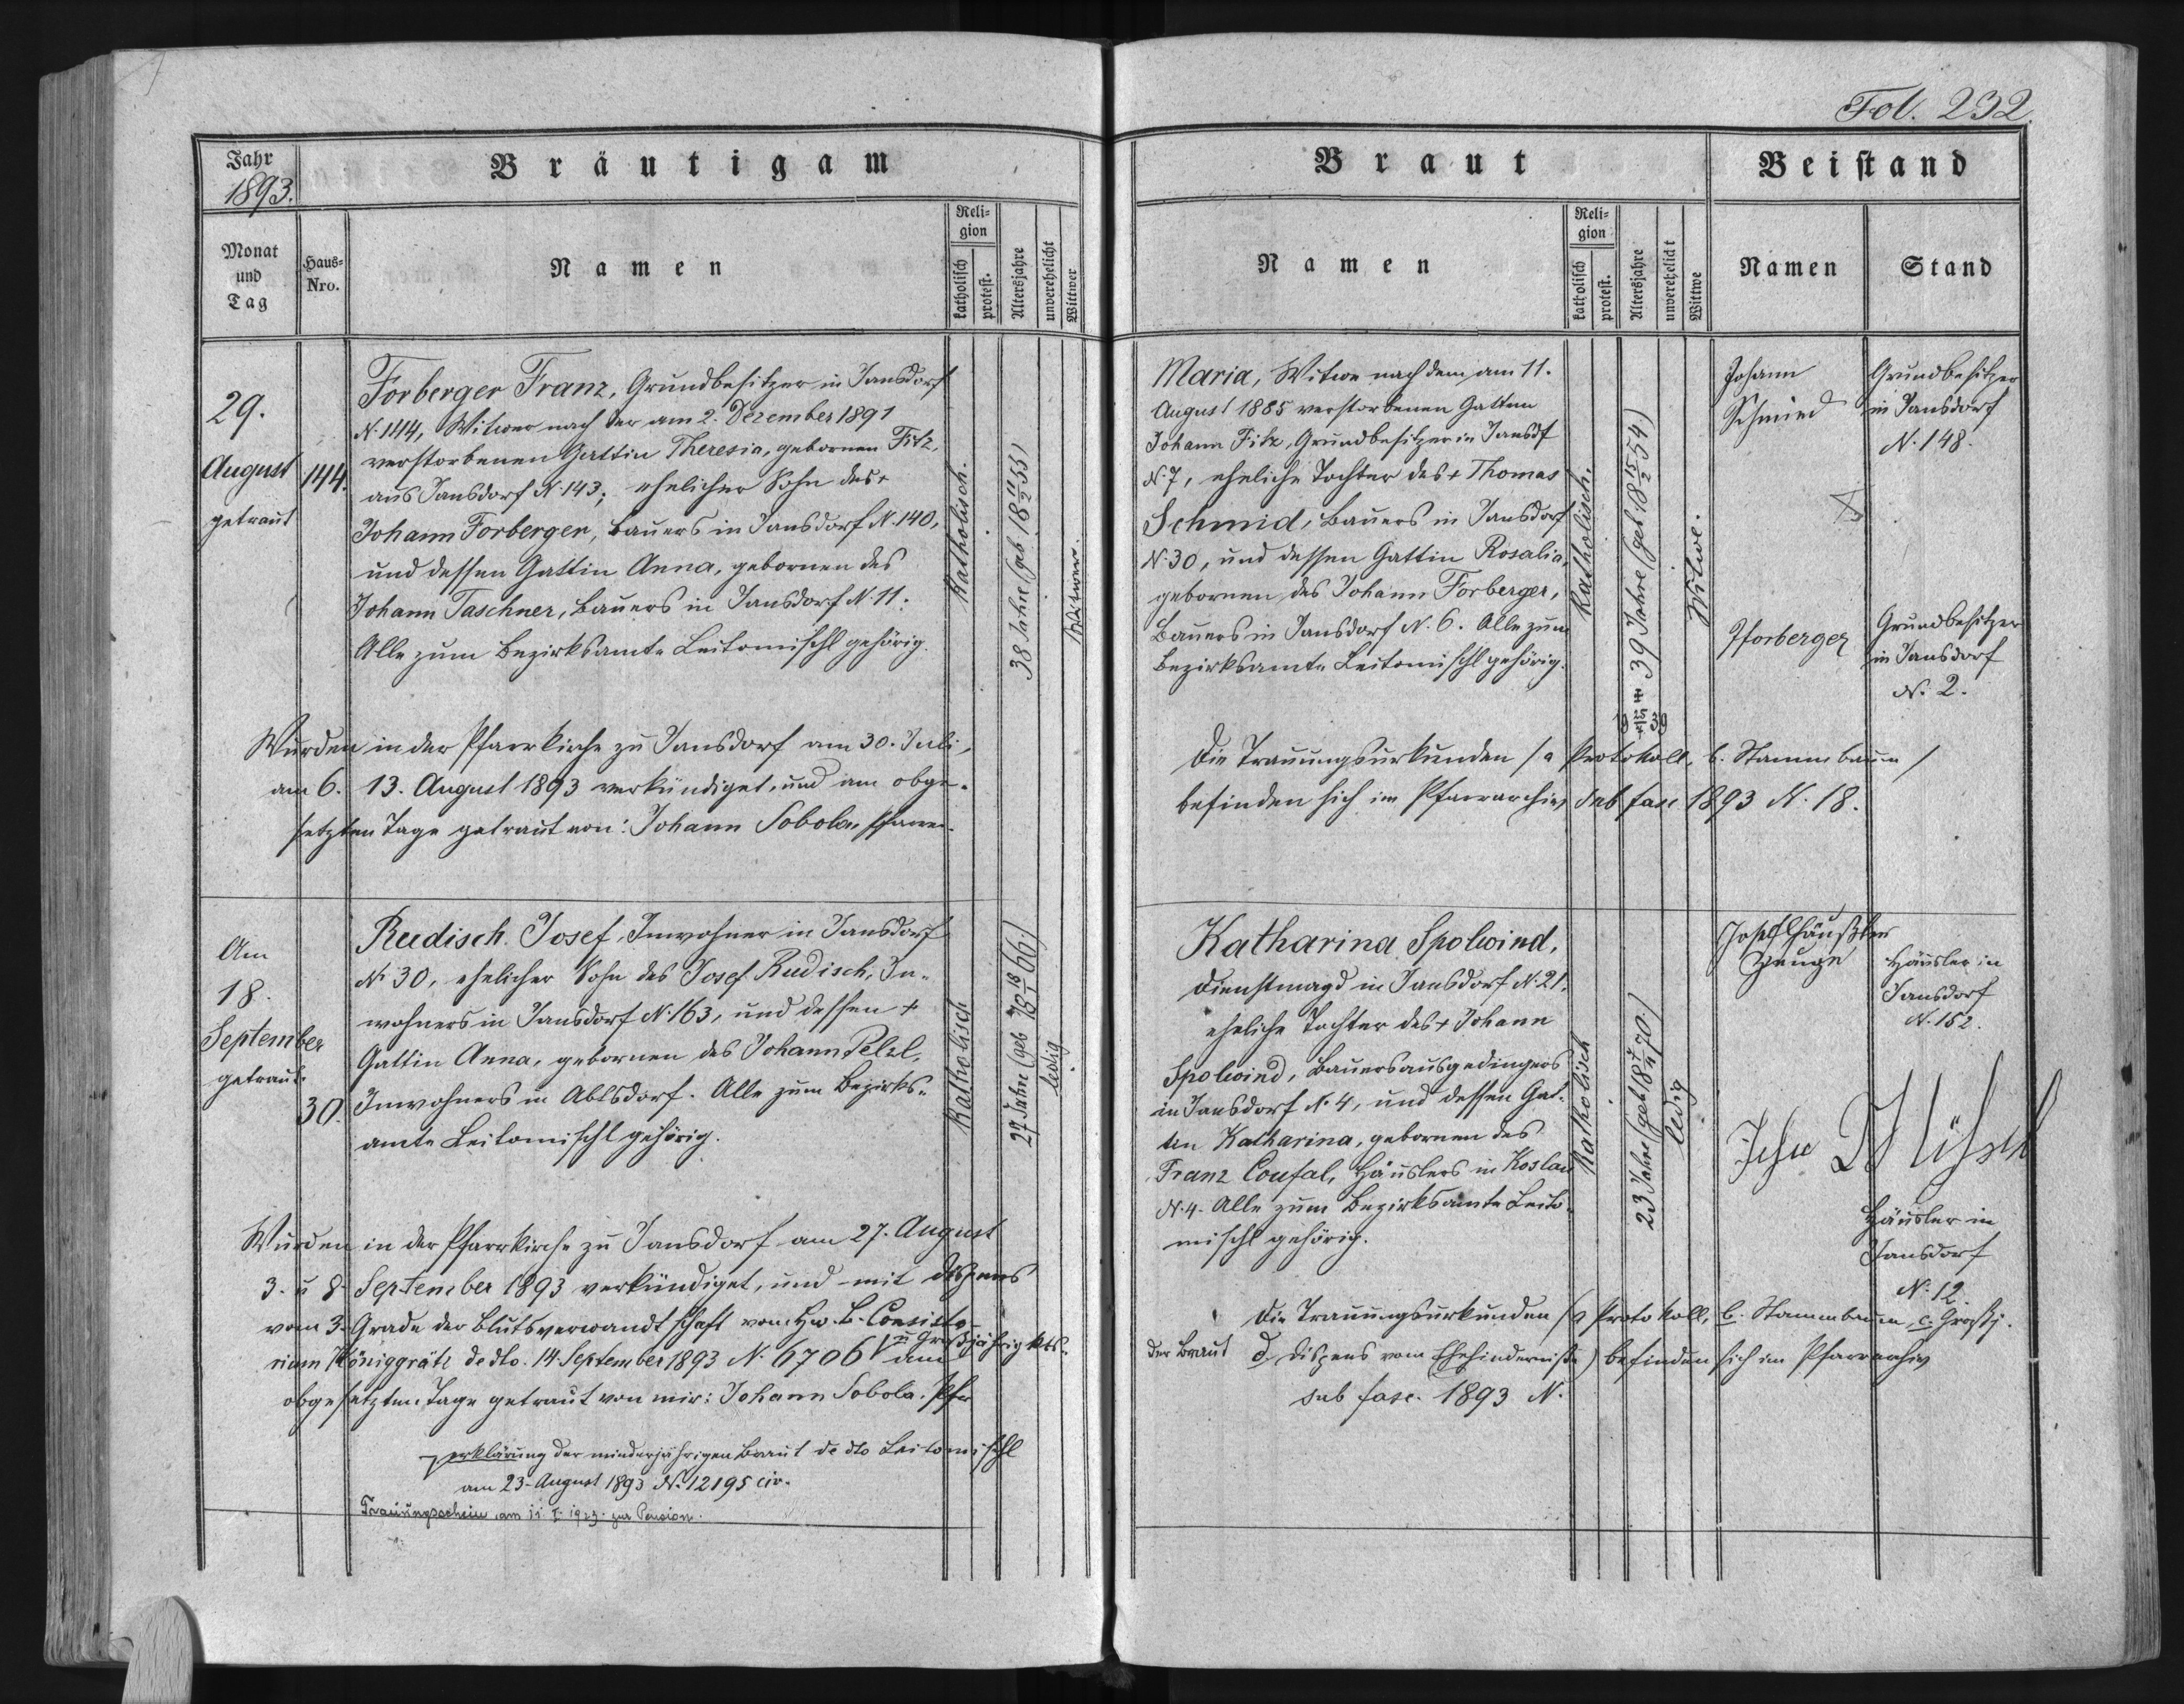 Fol. 232.
Jahr
1893.
Bräutigam
Braut
Beistand
Monat
und
Tag
Haus-
Nro.
Namen
Reli-
gion
katholisch
protest.
Altersjahre
unverehelicht
Wittwer
Namen
Reli-
gion
katholisch
protest.
Altersjahre
unverehelicht
Wittwe
Namen
Stand
29.
August
getraut
144.
Forberger Franz, Grundbesitzer in Jansdorf
N. 144, Witwer nach der am 2. Dezember 1891
verstorbenen Gattin Theresia, gebornen Fitz,
aus Jansdorf N. 143; ehelicher Sohn des +
Johann Forberger, Bauers in Jansdorf N. 140,
und dessen Gattin Anna, gebornen des
Johann Taschner, Bauers in Jansdorf N. 11.
Alle zum Bezirksamte Leitomischl gehörig.
Katholisch.
38 Jahre (geb 18 11/2 55)
Witwer.
Wurden in der Pfarrkirche zu Jansdorf am 30. Juli,
am 6. 13. August 1893 verkündiget, und am obge-
setzten Tage getraut von: Johann Sobola Pfarrer
Maria, Witwe nach dem am 11.
August 1885 verstorbenen Gatten
Johann Fitz, Grundbesitzer in Jansdf
N. 7, eheliche Tochter des + Thomas
Schmid, Bauers in Jansdorf
N. 30, und dessen Gattin Rosalia,
gebornen des Johann Forberger,
Bauers in Jansdorf N. 6. Alle zum
Bezirksamte Leitomischl gehörig.
Katholisch.
39 Jahre (geb 18 15/2 54)
Witwe.
Johann
Schmied
Grundbesitzer
in Jansdorf
N. 148.
Forberger
Grundbesitzer
in Jansdorf
N. 2.
Die Trauungsurkunden /a Protokoll, b. Stammbaum/
befinden sich im Pfarrarchiv sub fasc 1893 N. 18.
Am
18.
September
getraut.
30.
Rudisch Josef, Inwohner in Jansdorf
N. 30, ehelicher Sohn des Josef Rudisch, In-
wohners in Jansdorf N. 163, und dessen +
Gattin Anna, gebornen des Johann Pelzl,
Inwohners in Ablsdorf. Alle zum Bezirks-
amte Leitomischl gehörig.
Katholisch
27 Jahre (geb 18 18/1 66.)
ledig
Wurden in der Pfarrkirche zu Jansdorf am 27. August
3. u 8. September 1893 verkündiget, und mit Dispens
vom 3. Grade der Blutsverwandtschaft vom Hw. B. Consisto-
rium Königgrätz de dto. 14. September 1893 N. 6706 V am Großjährigkts-
obgesetzten Tage getraut von mir: Johann Sobola. Pfr
erklärung der minderjährigen Braut de dto Leitomischl
am 23. August 1893 N. 12195 civ.
Trauungsschein am 11. I. 1923. zur Pension.
Katharina Spolwind,
Dienstmagd in Jansdorf N. 21.
eheliche Tochter des + Johann
Spolwind, Bauersausgedingers
in Jansdorf N. 4, und dessen Gat-
tin Katharina, gebornen des
Franz Coufal, Häuslers in Koslau
N. 4. Alle zum Bezirksamte Leito-
mischl gehörig.
Katholisch
23 Jahre (geb 18 7/11 70.)
ledig
Josef
Zeuge
Häusler in
Jansdorf
N. 152.
Häusler in
Jansdorf
N. 12.
Die Trauungsurkunden (a Protokoll, b. Stammbaum, c. Großj.
der Braut d. Dispens vom Ehehindernisse) befinden sich im Pfarrarchiv
sub fasc. 1893 N.